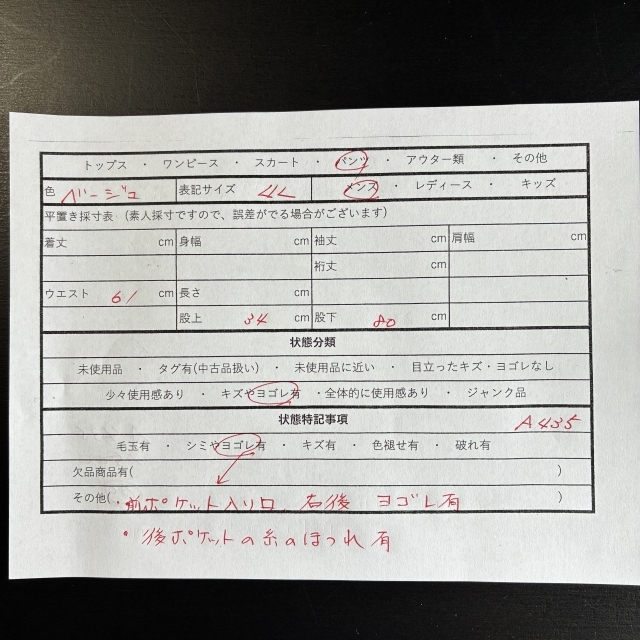 トップス ・ ワンピース ・ スカート ・ パンツ ・ アウター類 ・ その他
色 ベージュ 表記サイズ 4L メンズ ・ レディース ・ キッズ
平置き採寸表 (素人採寸ですので、誤差がでる場合がございます)
着丈 cm 身幅 cm 袖丈 cm 肩幅 cm
裄丈 cm
ウエスト 61 cm 長さ cm
股上 34 cm 股下 80 cm
状態分類
未使用品 ・ タグ有(中古品扱い) ・ 未使用品に近い ・ 目立ったキズ・ヨゴレなし
少々使用感あり ・ キズやヨゴレ有 ・全体的に使用感あり ・ ジャンク品
状態特記事項 A435
毛玉有 ・ シミやヨゴレ有 ・ キズ有 ・ 色褪せ有 ・ 破れ有
欠品商品有( )
その他(・前ポケット入り口 右後 ヨゴレ有 )
・後ポケットの糸のほつれ有